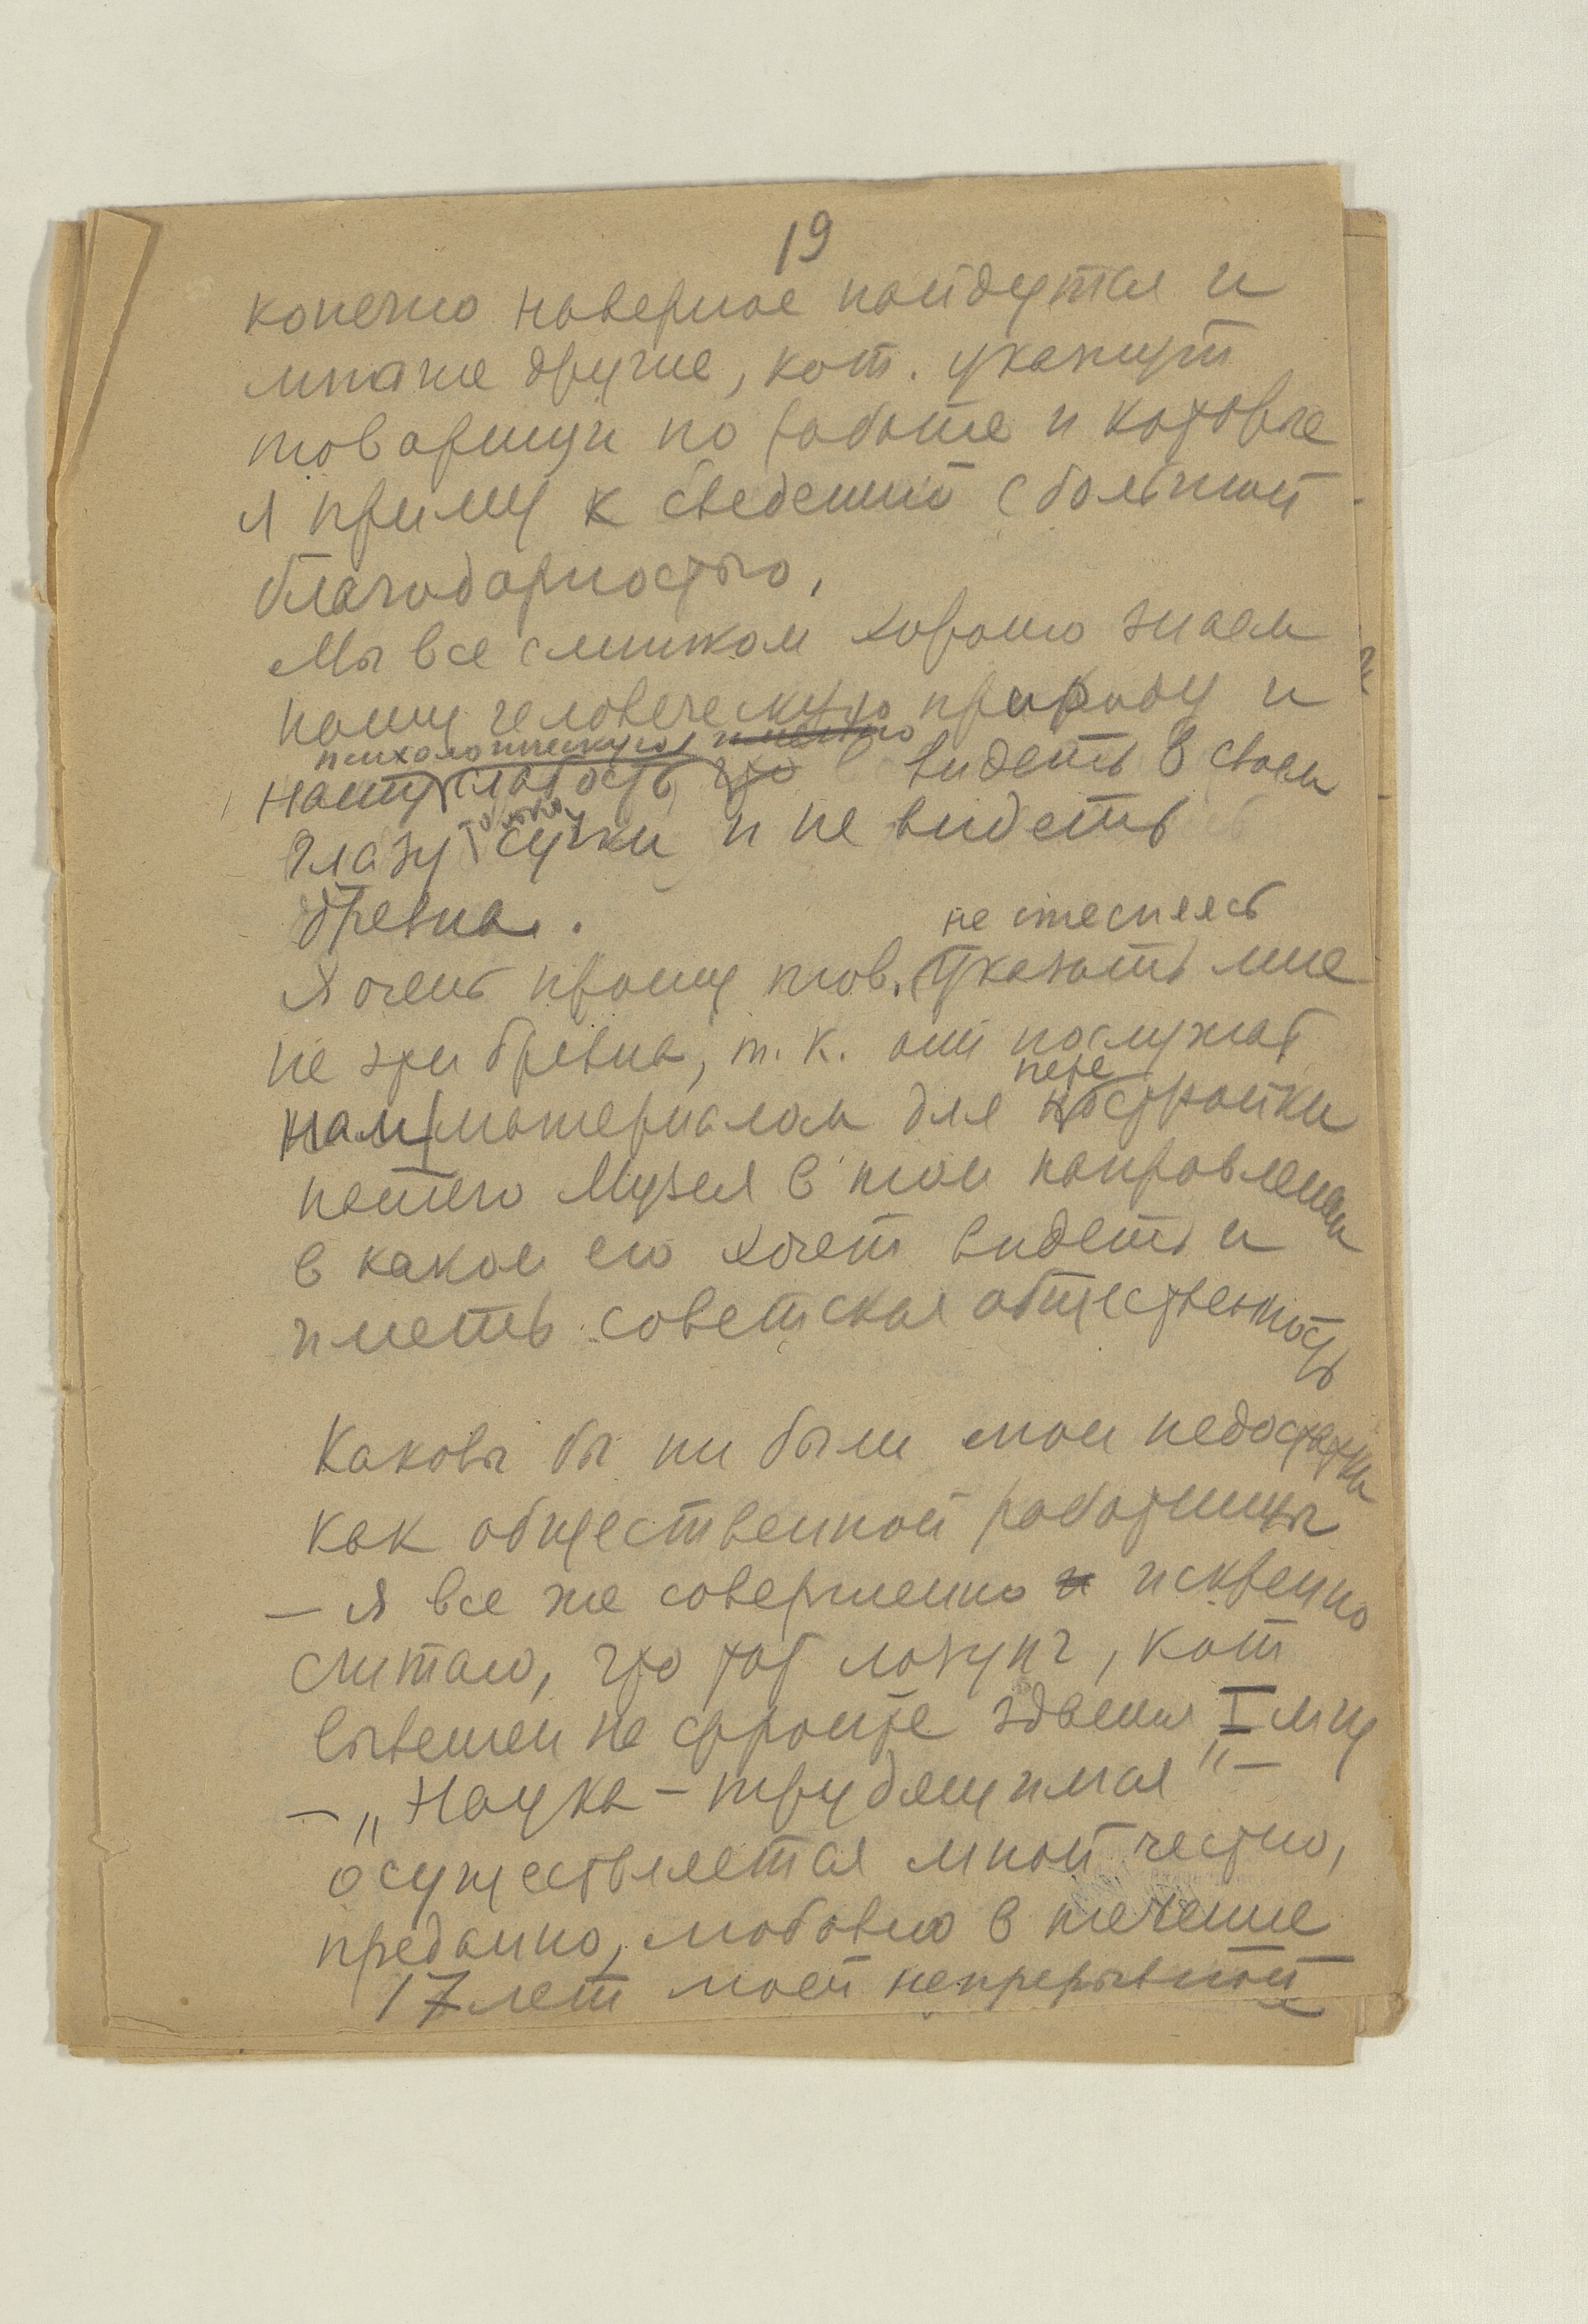 19
конечно наверное найдутся и
многие другие, кот. укажут
товарищи по работе и которые
я приму к сведению с большой
благодарностью,
Мы все слишком хорошо знаем
нашу человеческую природу и
психологическую
нашу слабость что видеть в своем
только
глазу сучки и не видеть
бревна.
не стесняясь
Я очень прошу тов. указать мне
на эти бревна, т. к. они послужат
пере
нам материалом для постройки
нашего Музея в том направлении
в каком его хочет видеть и
иметь советская общественность
Каковы бы ни были мои недостатки
как общественной работницы
— я все же совершенно и искренно
считаю, что тот лозунг, кот
вывешен на фронте здания I МГУ
— „Наука – трудящимся" –
осуществляется мной честно,
преданно, любовно в течение
17 лет моей непрерывной